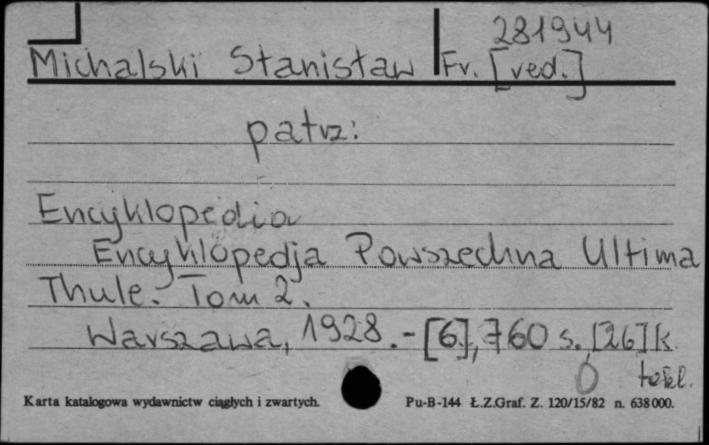 281944
Michalski Stanisław Fr. [red.]
patrz:
Encyklopedia
Encyklopedja Powszechna Ultima
Thule. Tom 2.
Warszawa, 1928.-[6], 760 s., [26] k
tabl.
Karta katalogowa wydawnictw ciągłych i zwartych. Pu-B-144 Ł.Z.Graf. Z. 120/15/82 n. 638000.